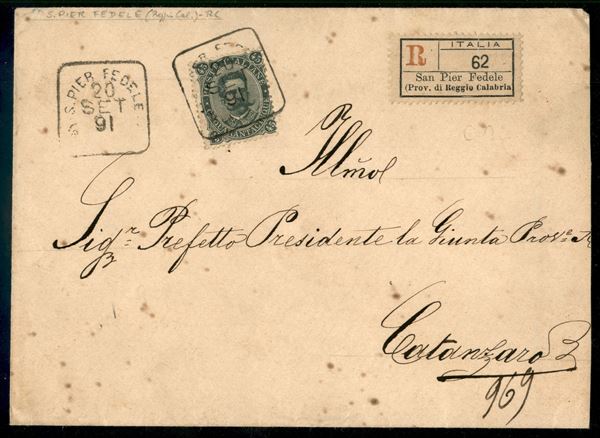 S. PIER FEDELE (Reggio Cal.) - RC
S. PIER FEDELE
20
SET
91
ITALIA
R
62
San Pier Fedele
(Prov. di Reggio Calabria
Sigr. Prefetto Presidente la Giunta Prov.e
Catanzaro
969